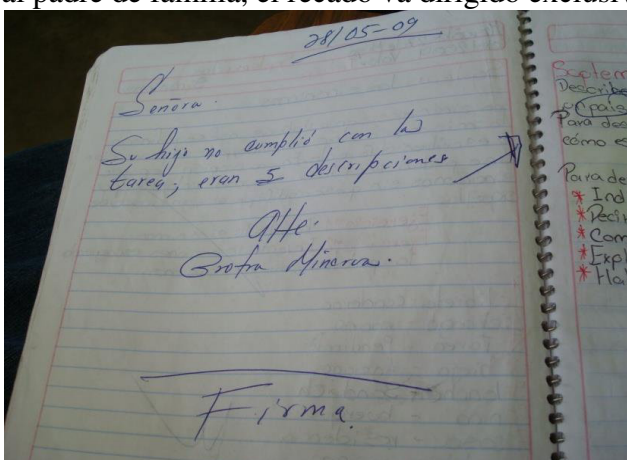 al padre de familia, el recado va dirigido exclusi
28/05-09
Señora.
Su hijo no cumplió con la
tarea, eran 5 descripciones
Atte.
Profra Minerva.
Firma.
Septiem
Describe
país
Para des
cómo e
Para de
* Ind
* Decir
* Com
* Expl
* Hal